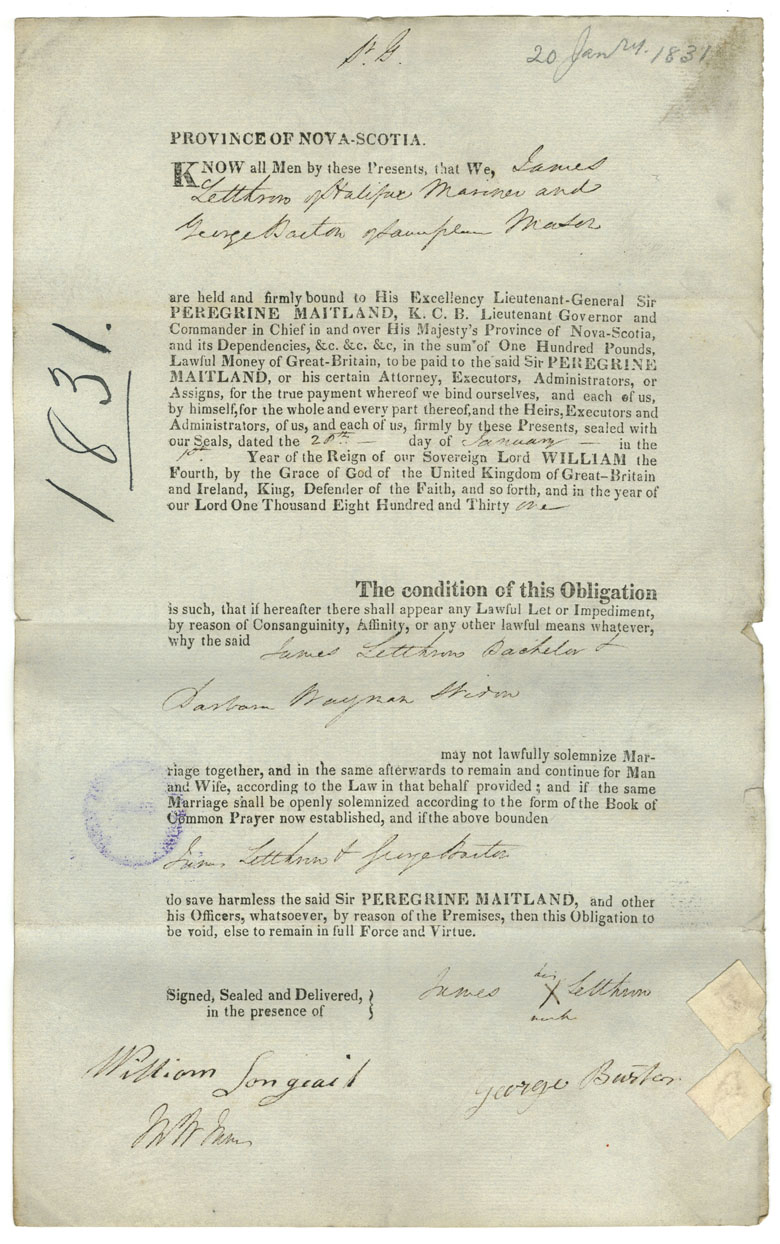 St. G.
20 Janry. 1831
PROVINCE OF NOVA-SCOTIA.
KNOW all Men by these Presents, that We, James
Letthron of Halifax Mariner and
George Barton of same place
are held and firmly bound to His Excellency Lieutenant-General Sir
PEREGRINE MAITLAND, K. C. B. Lieutenant Governor and
Commander in Chief in and over His Majesty's Province of Nova-Scotia,
and its Dependencies, &c. &c. &c, in the sum of One Hundred Pounds,
Lawful Money of Great-Britain, to be paid to the said Sir PEREGRINE
MAITLAND, or his certain Attorney, Executors, Administrators, or
Assigns, for the true payment whereof we bind ourselves, and each of us,
by himself, for the whole and every part thereof, and the Heirs, Executors and
Administrators, of us, and each of us, firmly by these Presents, sealed with
our Seals, dated the 20th — day of January — in the
1st Year of the Reign of our Sovereign Lord WILLIAM the
Fourth, by the Grace of God of the United Kingdom of Great-Britain
and Ireland, King, Defender of the Faith, and so forth, and in the year of
our Lord One Thousand Eight Hundred and Thirty one
1831.
The condition of this Obligation
is such, that if hereafter there shall appear any Lawful Let or Impediment,
by reason of Consanguinity, Affinity, or any other lawful means whatever,
why the said James Letthron Bachelor &
Barbara Waynan Widow
may not lawfully solemnize Mar-
riage together, and in the same afterwards to remain and continue for Man
and Wife, according to the Law in that behalf provided; and if the same
Marriage shall be openly solemnized according to the form of the Book of
Common Prayer now established, and if the above bounden
James Letthron & George Barton
do save harmless the said Sir PEREGRINE MAITLAND, and other
his Officers, whatsoever, by reason of the Premises, then this Obligation to
be void, else to remain in full Force and Virtue.
Signed, Sealed and Delivered,
in the presence of
James his X mark Letthron
William
George Burton